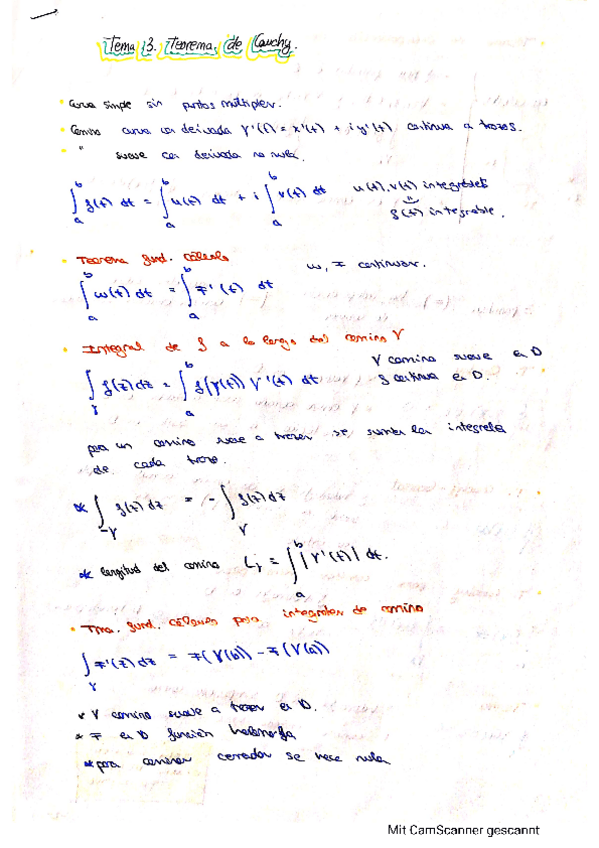 Tema 3. Teorema de Cauchy.
• Curva simple sin puntos múltiples.
• Camino curva con derivada γ'(t) = x'(t) + i y'(t) continua a trozos.
• " suave con derivada no nula.
∫_a^b f(t) dt = ∫_a^b u(t) dt + i ∫_a^b v(t) dt u(t), v(t) integrables
f(t) integrable.
• Teorema fund. cálculo
w, F continuas.
∫_a^b w(t) dt = ∫_a^b F'(t) dt
• Integral de f a lo largo del camino γ
γ camino suave en D
∫_γ f(z) dz = ∫_a^b f(γ(t)) γ'(t) dt f continua en D.
para un camino suave a trozos se suman las integrales
de cada trozo.
* ∫_{-γ} f(z) dz = - ∫_γ f(z) dz
* longitud del camino L_γ = ∫_a^b |γ'(t)| dt.
• Tma. fund. cálculo para integrales de camino
∫_γ F'(z) dz = F(γ(b)) - F(γ(a))
* γ camino suave a trozos en D.
* F en D función holomorfa
* para caminos cerrados se hace nula
Mit CamScanner gescannt